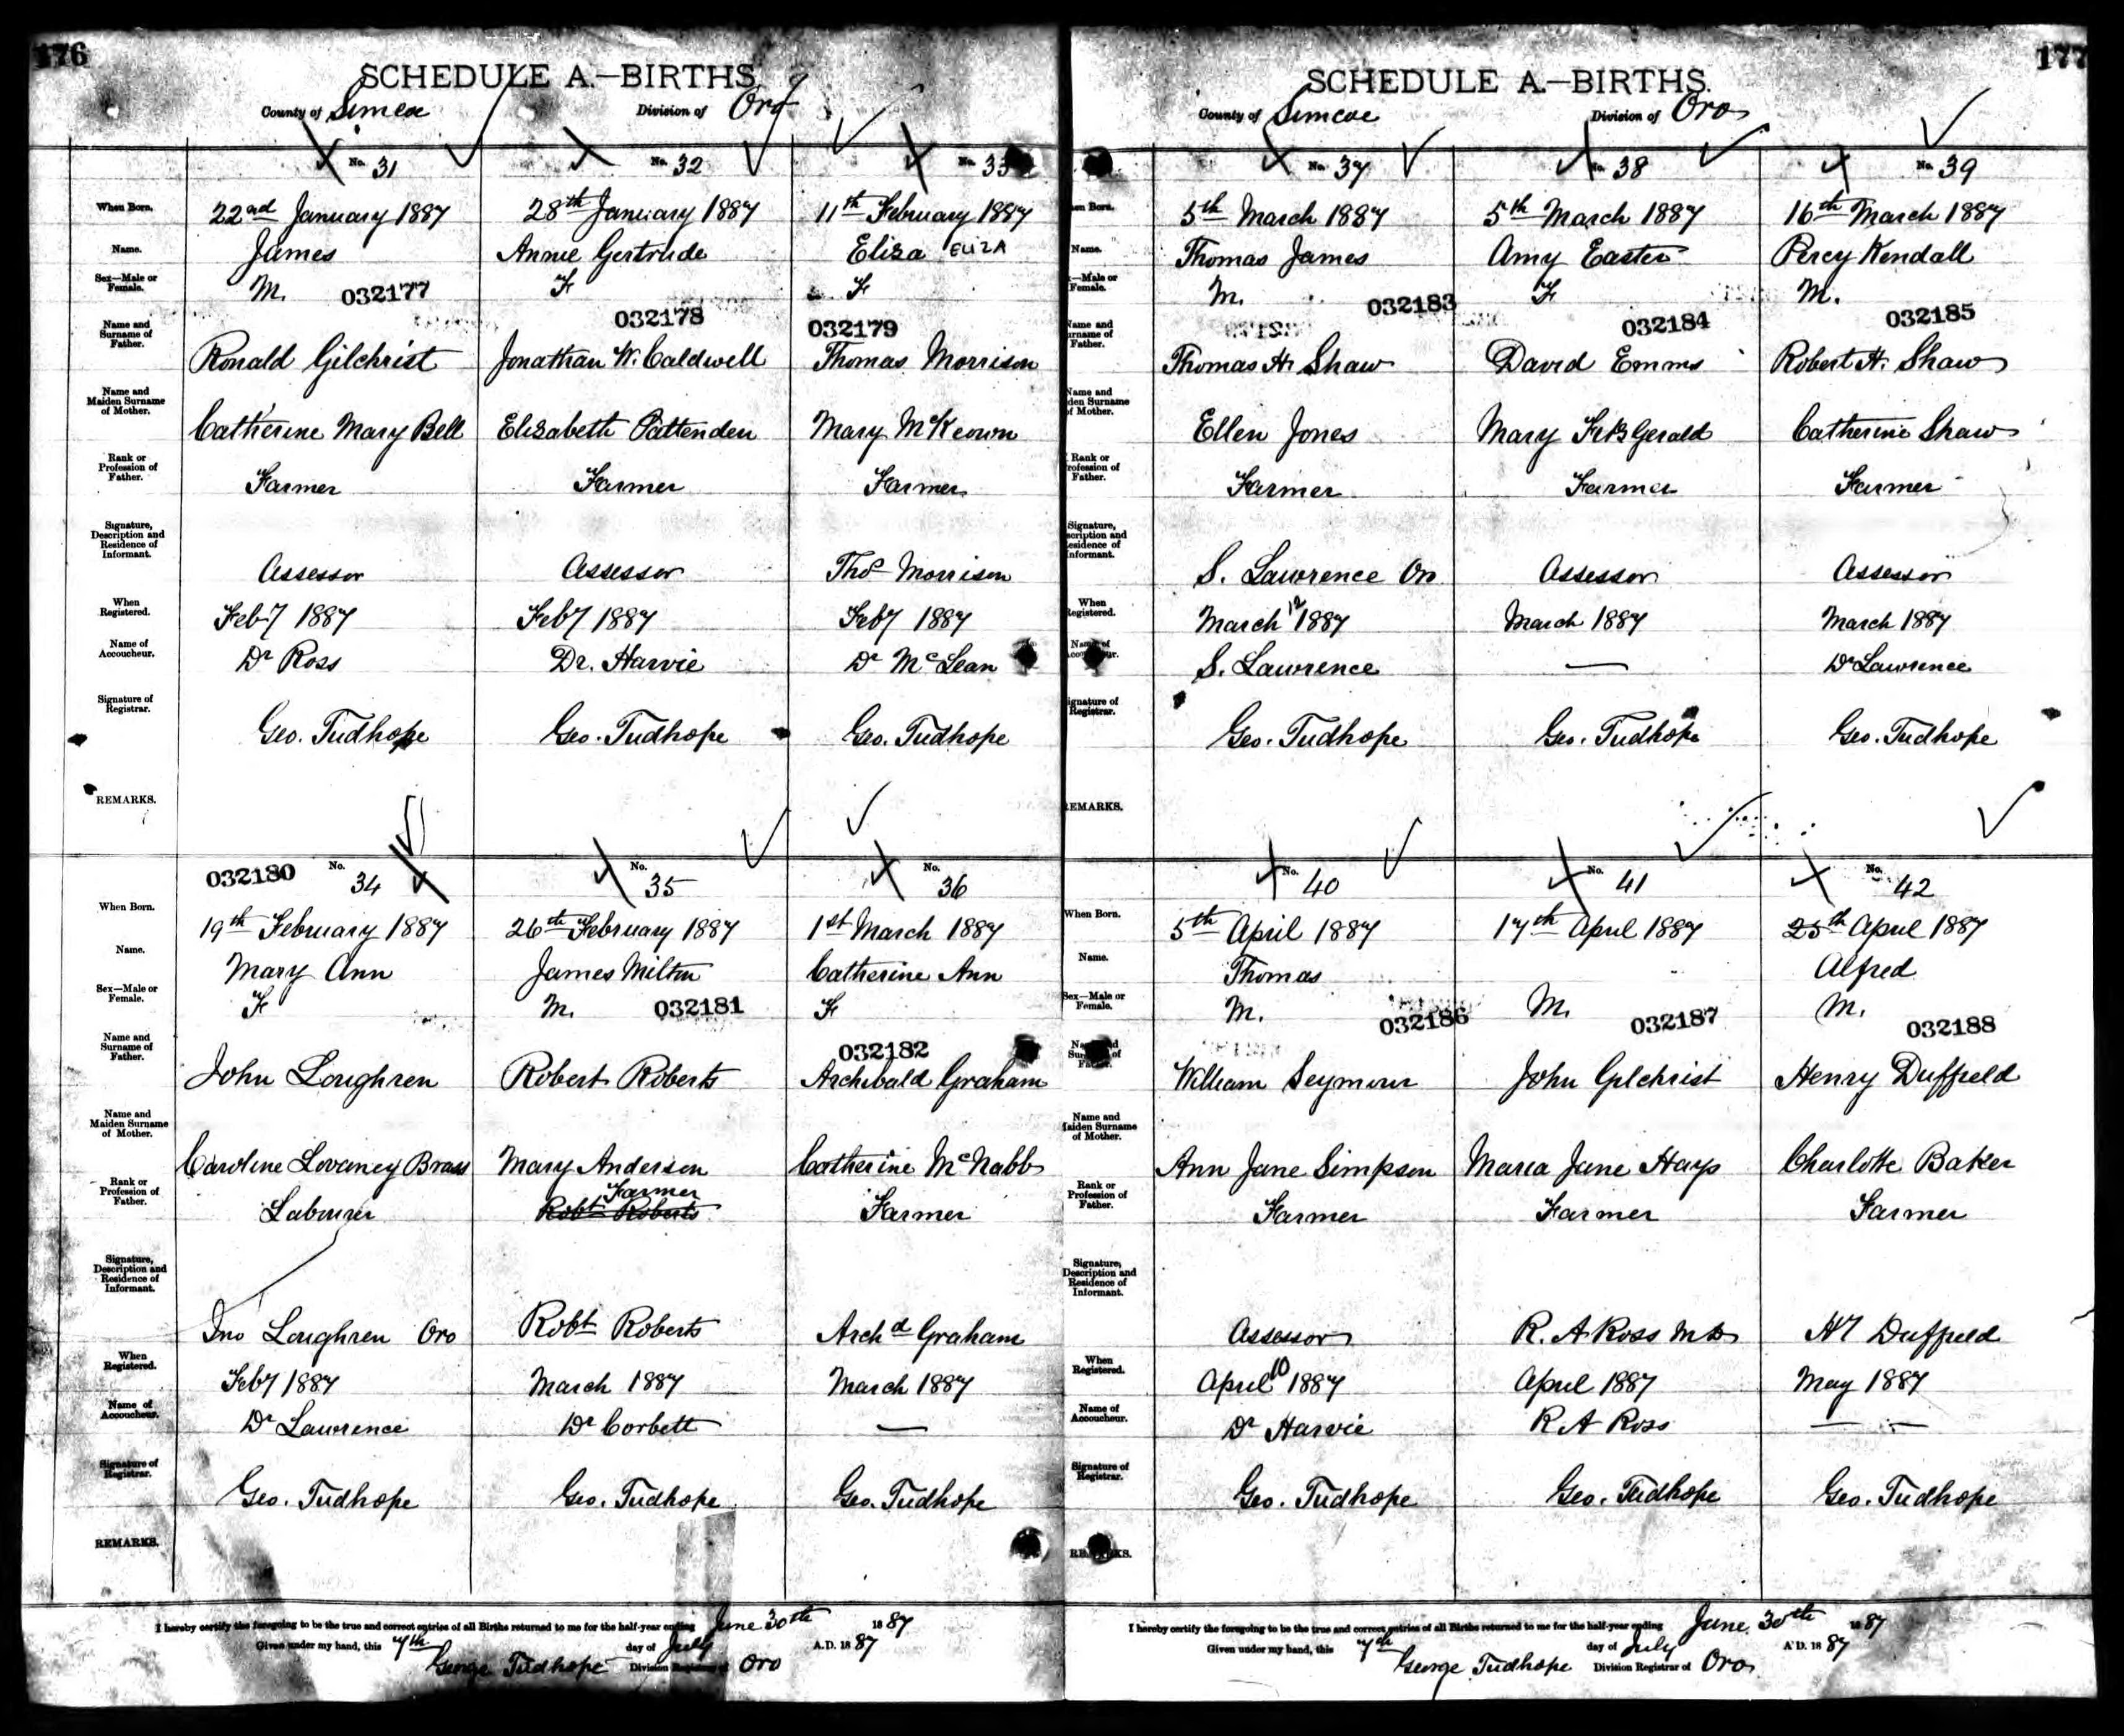 176
SCHEDULE A.—BIRTHS.
County of Simcoe Division of Oro
No. 31 No. 32 No. 33
When Born. 22nd January 1887 28th January 1887 11th February 1887
Name. James Annie Gertrude Eliza ELIZA
Sex—Male or Female. M. 032177 F 032178 F 032179
Name and Surname of Father. Ronald Gilchrist Jonathan W. Caldwell Thomas Morrison
Name and Maiden Surname of Mother. Catherine Mary Bell Elizabeth Pattenden Mary McKeown
Rank or Profession of Father. Farmer Farmer Farmer
Signature, Description and Residence of Informant. Assessor Assessor Thos Morrison
When Registered. Feby 1887 Feby 1887 Feby 1887
Name of Accoucheur. Dr Ross Dr. Harvie Dr McLean
Signature of Registrar. Geo. Tudhope Geo. Tudhope Geo. Tudhope
REMARKS.
032180 No. 34 No. 35 No. 36
When Born. 19th February 1887 26th February 1887 1st March 1887
Name. Mary Ann James Milton Catherine Ann
Sex—Male or Female. F M. 032181 F 032182
Name and Surname of Father. John Loughren Robert Roberts Archibald Graham
Name and Maiden Surname of Mother. Caroline Lovaney Brass Mary Anderson Catherine McNabb
Rank or Profession of Father. Labourer Farmer Robt Roberts Farmer
Signature, Description and Residence of Informant. Jno Loughren Oro Robt Roberts Archd Graham
When Registered. Feby 1887 March 1887 March 1887
Name of Accoucheur. Dr Lawrence Dr Corbett —
Signature of Registrar. Geo. Tudhope Geo. Tudhope Geo. Tudhope
REMARKS.
I hereby certify the foregoing to be the true and correct entries of all Births returned to me for the half-year ending June 30th 1887
Given under my hand, this 7th day of July A.D. 1887
George Tudhope Division Registrar of Oro
177
SCHEDULE A.—BIRTHS.
County of Simcoe Division of Oro
No. 37 No. 38 No. 39
When Born. 5th March 1887 5th March 1887 16th March 1887
Name. Thomas James Amy Easter Percy Kendall
Sex—Male or Female. M. 032183 F 032184 M. 032185
Name and Surname of Father. Thomas H. Shaw David Emms Robert H. Shaw
Name and Maiden Surname of Mother. Ellen Jones Mary FitzGerald Catherine Shaw
Rank or Profession of Father. Farmer Farmer Farmer
Signature, Description and Residence of Informant. S. Lawrence Assessor Assessor
When Registered. March 12 1887 March 1887 March 1887
Name of Accoucheur. S. Lawrence — Dr Lawrence
Signature of Registrar. Geo. Tudhope Geo. Tudhope Geo. Tudhope
REMARKS.
No. 40 No. 41 No. 42
When Born. 5th April 1887 17th April 1887 25th April 1887
Name. Thomas Alfred
Sex—Male or Female. M. 032186 M. 032187 M. 032188
Name and Surname of Father. William Seymour John Gilchrist Henry Duffield
Name and Maiden Surname of Mother. Ann Jane Simpson Maria Jane Hays Charlotte Baker
Rank or Profession of Father. Farmer Farmer Farmer
Signature, Description and Residence of Informant. Assessor R. A Ross MD Duffield
When Registered. April 10 1887 April 1887 May 1887
Name of Accoucheur. Dr Harvie R A Ross —
Signature of Registrar. Geo. Tudhope Geo. Tudhope Geo. Tudhope
REMARKS.
I hereby certify the foregoing to be the true and correct entries of all Births returned to me for the half-year ending June 30th 1887
Given under my hand, this 7th day of July A.D. 1887
George Tudhope Division Registrar of Oro